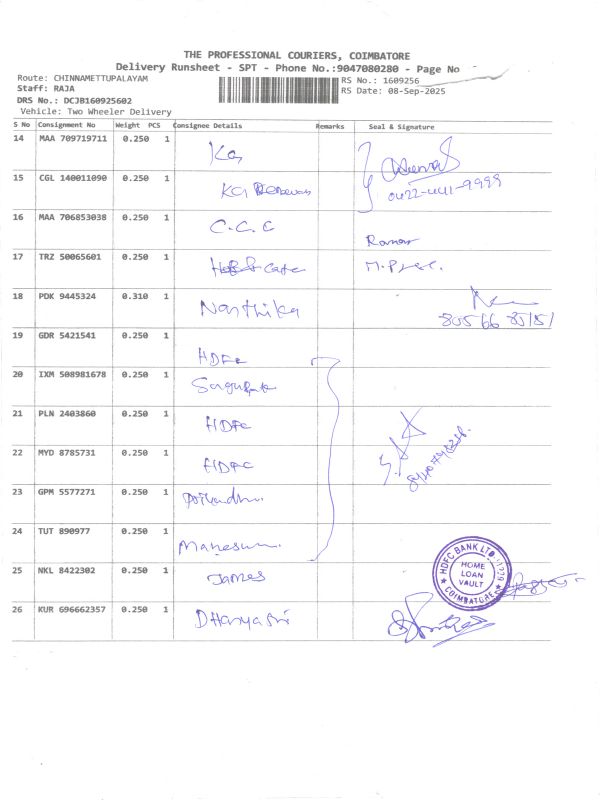 THE PROFESSIONAL COURIERS, COIMBATORE
Delivery Runsheet - SPT - Phone No.:9047080280 - Page No
Route: CHINNAMETTUPALAYAM
RS No.: 1609256
Staff: RAJA
RS Date: 08-Sep-2025
DRS No.: DCJB160925602
Vehicle: Two Wheeler Delivery
S No Consignment No Weight PCS Consignee Details Remarks Seal & Signature
14 MAA 709719711 0.250 1 KG
15 CGL 140011090 0.250 1 KG
0422-441-9999
16 MAA 706853038 0.250 1 C.C.C
17 TRZ 50065601 0.250 1 Cafe
18 PDK 9445324 0.310 1 Narthika
19 GDR 5421541 0.250 1 HDFC
20 IXM 508981678 0.250 1
21 PLN 2403860 0.250 1 HDFC
22 MYD 8785731 0.250 1 HDFC
23 GPM 5577271 0.250 1
24 TUT 890977 0.250 1
25 NKL 8422302 0.250 1 James
HDFC BANK LTD.
HOME
LOAN
VAULT
COIMBATORE
26 KUR 696662357 0.250 1